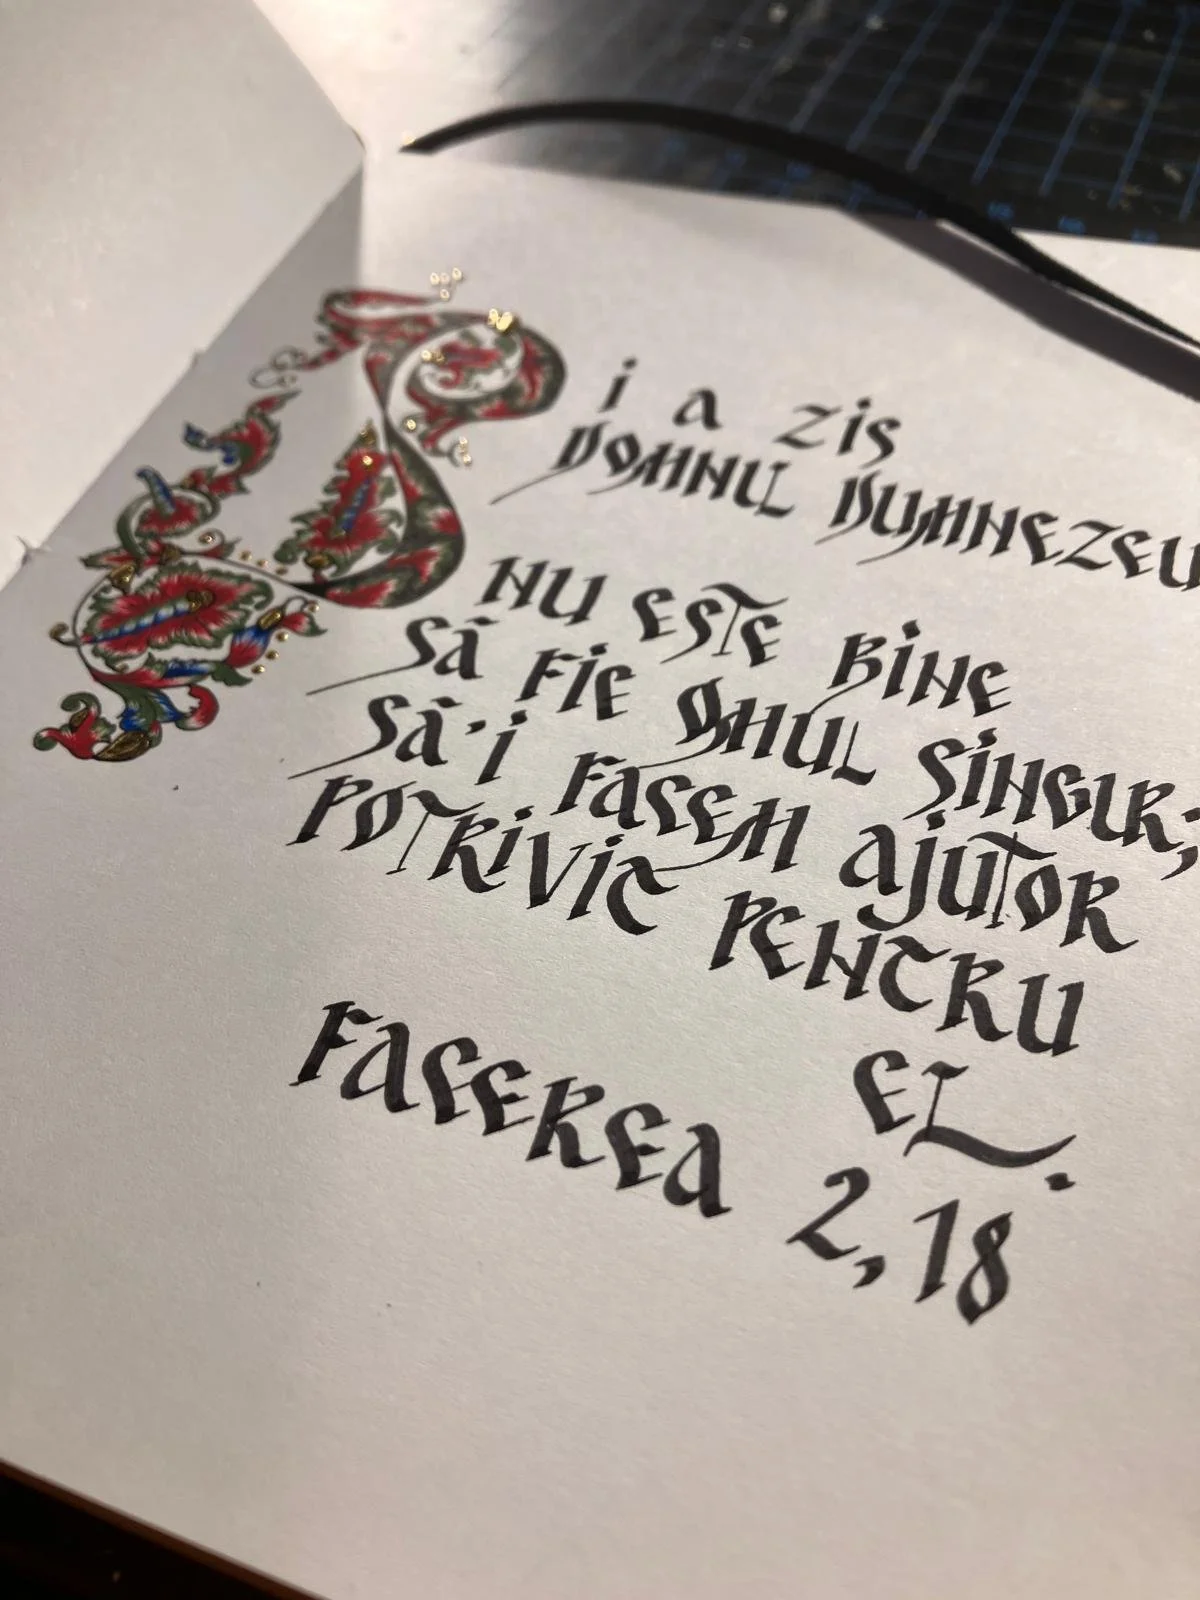 Și a zis
DOMNUL DUMNEZEU
NU ESTE BINE
SĂ FIE OMUL SINGUR;
SĂ-I FACEM AJUTOR
POTRIVIT PENTRU
EL.
FACEREA 2,18